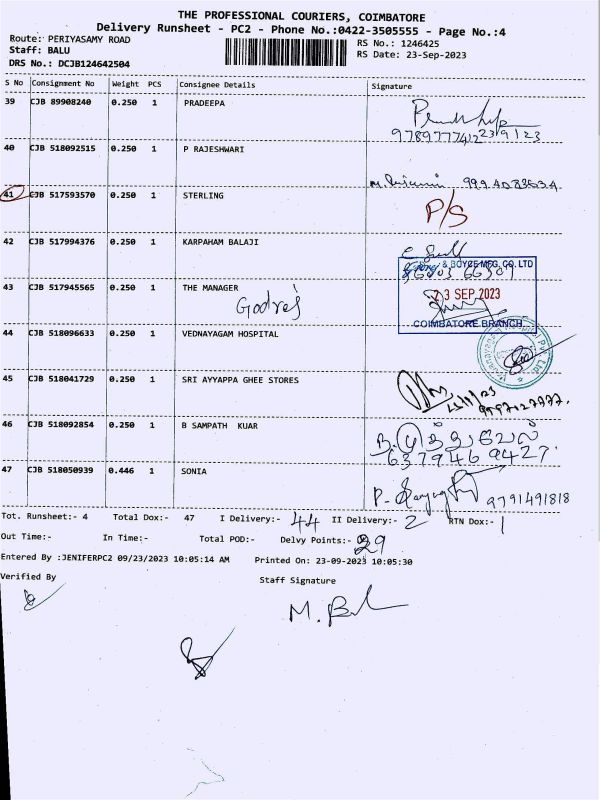 THE PROFESSIONAL COURIERS, COIMBATORE
Delivery Runsheet - PC2 - Phone No.:0422-3505555 - Page No.:4
Route: PERIYASAMY ROAD
RS No.: 1246425
Staff: BALU
RS Date: 23-Sep-2023
DRS No.: DCJB124642504
S No Consignment No Weight PCS Consignee Details Signature
39 CJB 89908240 0.250 1 PRADEEPA
23/9/23
40 CJB 518092515 0.250 1 P RAJESHWARI
41 CJB 517593570 0.250 1 STERLING
P/S
42 CJB 517994376 0.250 1 KARPAHAM BALAJI
& BOYCE MFG. CO. LTD
43 CJB 517945565 0.250 1 THE MANAGER
23 SEP 2023
Godrej
COIMBATORE BRANCH
44 CJB 518096633 0.250 1 VEDNAYAGAM HOSPITAL
45 CJB 518041729 0.250 1 SRI AYYAPPA GHEE STORES
46 CJB 518092854 0.250 1 B SAMPATH KUAR
6379469427
47 CJB 518050939 0.446 1 SONIA
9791491818
Tot. Runsheet:- 4 Total Dox:- 47 I Delivery:- 44 II Delivery:- 2 RTN Dox:- 1
Out Time:- In Time:- Total POD:- Delvy Points:- 29
Entered By :JENIFERPC2 09/23/2023 10:05:14 AM Printed On: 23-09-2023 10:05:30
Verified By Staff Signature